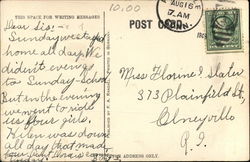 THIS SPACE FOR WRITING MESSAGES
10.00
POST
AUG 16
7 AM
CONN.
Dear Sis:—
Sunday we stayed
home all day. We
didn't even go
to Sunday-School
But in the evening
we went to ride
us four girls.
Helen was down
all day that made
Miss Florine E. Slater
373 Plainfield St.
Olneyville
R.I.
ADDRESS ONLY.